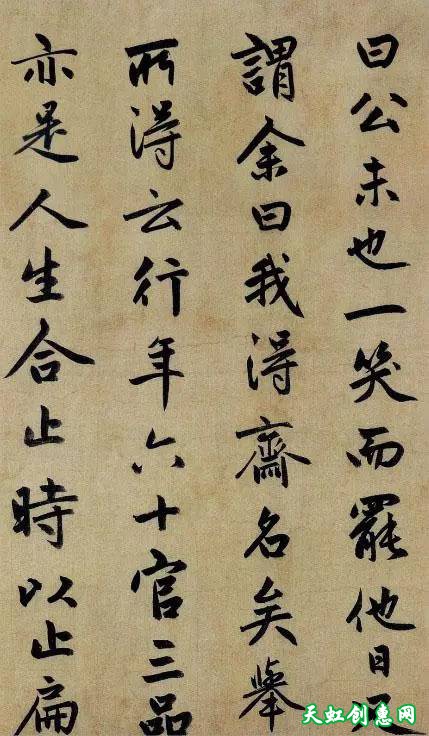 曰公未也一笑而罷他日足
謂余曰我得齋名矣舉
所得云行年六十官三品
亦是人生合止時以止扁
天虹创惠网